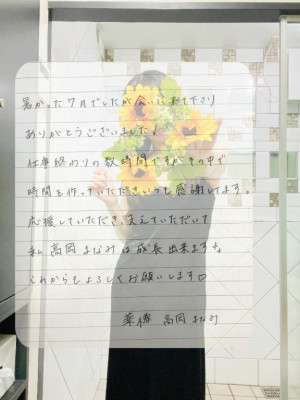 暑かった7月でしたが会いに来て下さり
ありがとうございました!
仕事終わりの数時間ですがその中で
時間を作っていただきいつも感謝してます。
応援していただき、支えていただいて
私 高岡まなみは成長出来ます
これからもよろしくお願いします♡
薬膳 高岡 まなみ